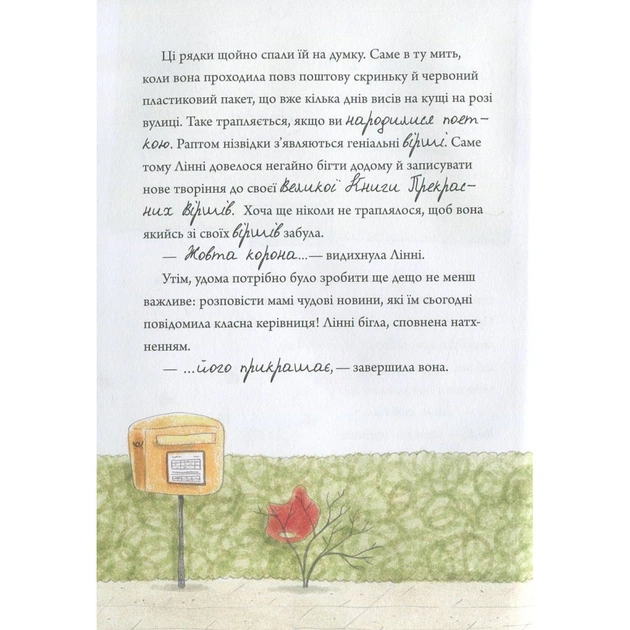 Ці рядки щойно спали їй на думку. Саме в ту мить,
коли вона проходила повз поштову скриньку й червоний
пластиковий пакет, що вже кілька днів висів на кущі на розі
вулиці. Таке трапляється, якщо ви народилися поет-
кою. Раптом нізвідки з’являються геніальні вірші. Саме
тому Лінні довелося негайно бігти додому й записувати
нове творіння до своєї Великої Книги Прекрас-
них Віршів. Хоча ще ніколи не траплялося, щоб вона
якийсь зі своїх віршів забула.
— Жовта корона...— видихнула Лінні.
Утім, удома потрібно було зробити ще дещо не менш
важливе: розповісти мамі чудові новини, які їм сьогодні
повідомила класна керівниця! Лінні бігла, сповнена натх-
ненням.
— ...його прикрашає, — завершила вона.